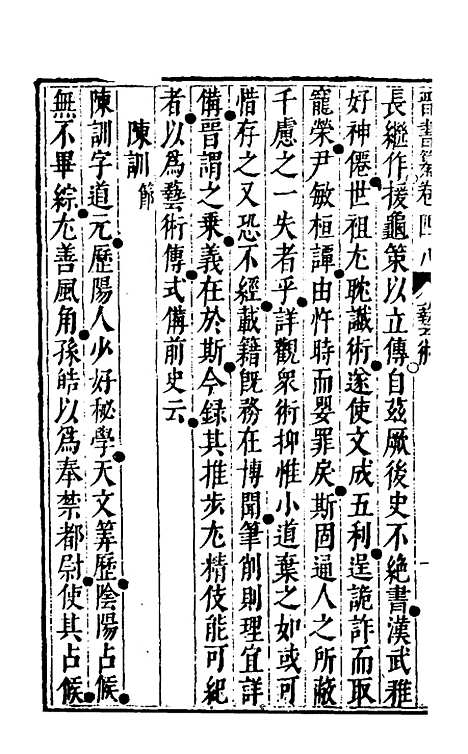 晉書纂卷四八 藝術
長繼作援龜策以立傳自茲厥後史不絕書漢武雅
好神僊世祖尢耽讖術遂使文成五利逞詭詐而取
寵榮尹敏桓譚由忤時而嬰罪戾斯固通人之所蔽
千慮之一失者乎詳觀衆術抑惟小道棄之如或可
惜存之又恐不經載籍旣務在博聞筆削則理宜詳
備晉謂之乘義在於斯今録其推步尢精伎能可紀
者以爲藝術傳式備前史云
陳訓 節
陳訓字道元歷陽人少好秘學天文筭歷陰陽占候
無不畢綜尢善風角孫皓以爲奉禁都尉使其占候